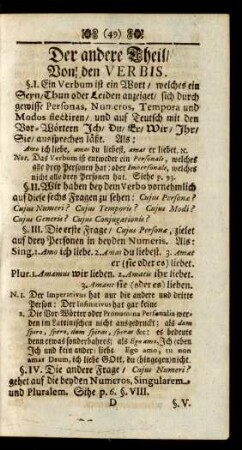 (49)
Der andere Theil/
Von den VERBIS.
§. I. Ein Verbum ist ein Wort / welches ein
Seyn/Thun oder Leiden anzeiget/ sich durch
gewisse Personas, Numeros, Tempora und
Modos flectiren/ und auf Teutsch mit den
Vor-Wörtern Ich/ Du/ Er/ Wir/ Ihr/
Sie/ aussprechen läst. Als:
Amo ich liebe, amas du liebest. amat er liebet. ꝛc.
Not. Das Verbum ist entweder ein Personale, welches
alle drey Personen hat: oder Impersonale, welches
nicht alle drey Personen hat. Siehe p. 93.
§. II. Wir haben bey dem Verbo vornehmlich
auf diese sechs Fragen zu sehen: Cujus Personæ?
Cujus Numeri? Cujus Temporis? Cujus Modi?
Cujus Generis? Cujus Conjugationis?
§. III. Die erste Frage/ Cujus Personæ, zielet
auf drey Personen in beyden Numeris. Als:
Sing. 1. Amo ich liebe. 2. Amas du liebest. 3. Amat
er (sie oder es) liebet.
Plur. 1. Amamus wir lieben. 2. Amatis ihr liebet.
3. Amant sie (oder es) lieben.
N. 1. Der Imperativus hat nur die andere und dritte
Person: Der Infinitivus hat gar keine
2. Die Vor-Wörter oder Pronomina Personalia werden
im Lateinischen nicht ausgedruckt; als dum
spiro, spero, dum spiras, speras &c: es bedeute
denn etwas sonderbahres; als Ego amo, Ich (eben
Ich und kein ander) liebe Ego amo, tu non
amas Deum, ich liebe GOtt, du (hingegen) nicht.
§. IV. Die andere Frage/ Cujus Numeri?
gehet auf die beyden Numeros, Singularem
und Pluralem. Sihe p. 6. §. VIII.
D §. V.